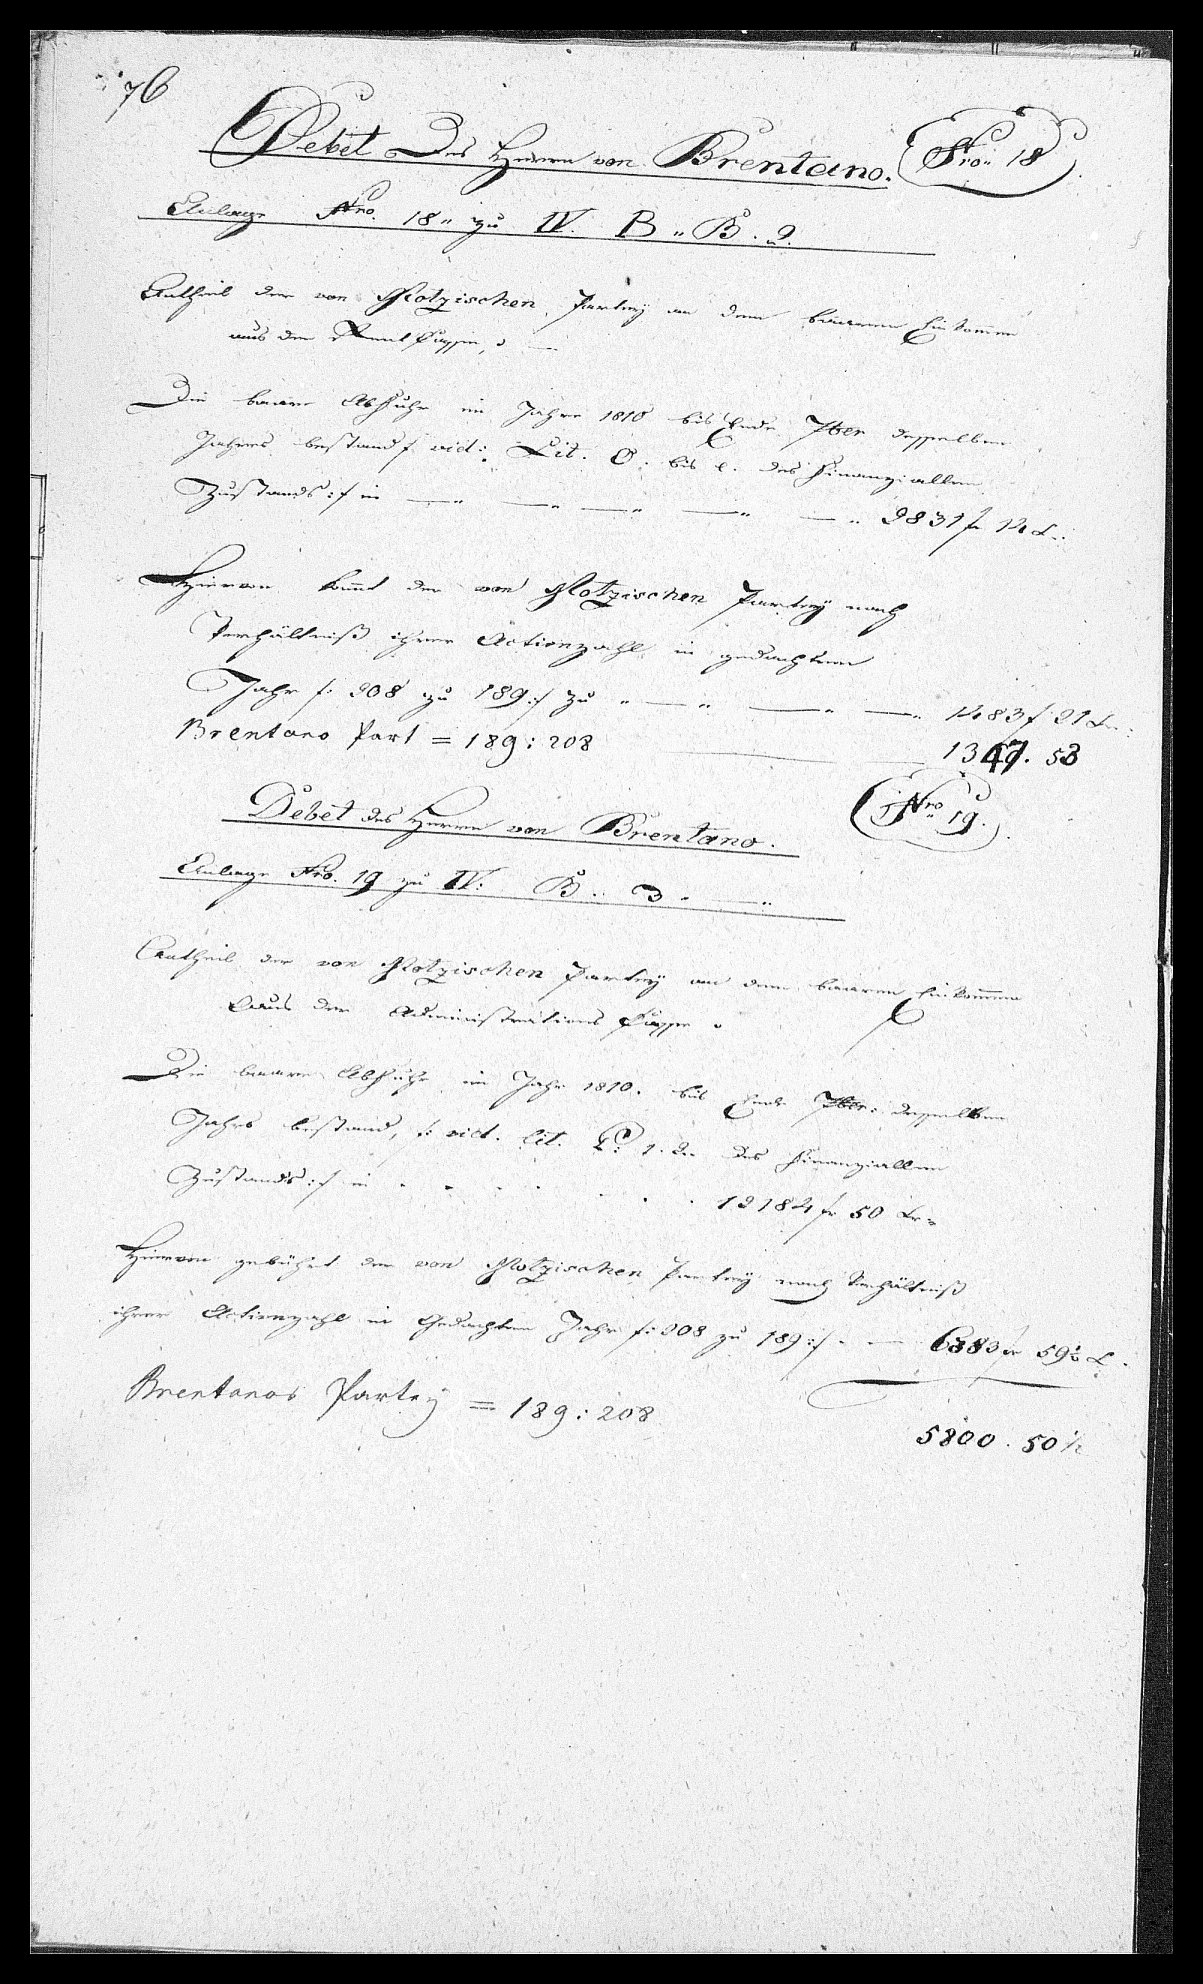 76
Debet des Herrn von Brentano. Nro. 18
Anlage Nro. 18 zu IV. B. B. 2.
Antheil der von Motzischen Partey an dem baaren Einkommen
aus der Rent Casse,
Die baare Abfuhr im Jahre 1810 bis Ende 7ber desselben
Jahres bestand /: vid: Lit. O. bis e. des Finanziellen
Zustands :/ in — — — — — 2831 fr 14 Kr:
Hiervon komt der von Motzischen Partey nach
Verhältniß ihrer Actienzahl in gedachtem
Jahr /: 208 zu 189 :/ zu — — — 1483 f 21 Kr.
Brentano Part = 189 : 208 1347. 53
Debet des Herrn von Brentano. Nro 19.
Anlage Nro. 19 zu IV: B. 3.
Antheil der von Motzischen Partey an dem baaren Einkommen
aus der Administrations Casse
Die baare Abfuhr im Jahr 1810. bis Ende 7ber: desselben
Jahrs bestand, /: vid. lit. P: 1. 2. des Finanziellen
Zustands :/ in . . . . . . . 12184 fr 50 Kr
Hiervon gebührt der von Motzischen Partey nach Verhältniß
ihrer Actienzahl in Gedachtem Jahr /: 208 zu 189 :/ . — 6383 fr 59½ K.
Brentanos Partey = 189 : 208
5800. 50 ½